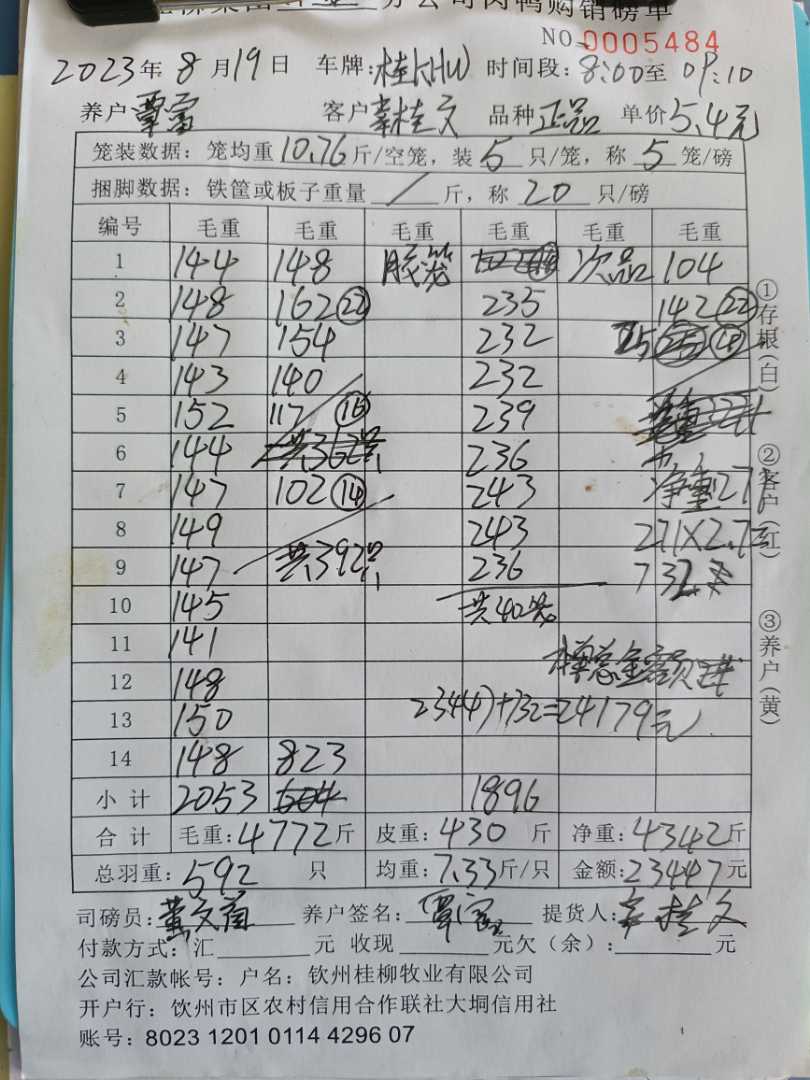 分公司肉鸭购销磅单
NO 0005484
2023年 8月19日 车牌:桂KHU 时间段:8:00至09:10
养户 覃富 客户 辜桂文 品种 正品 单价 5.4元
笼装数据: 笼均重 10.76 斤/空笼, 装 5 只/笼, 称 5 笼/磅
捆脚数据: 铁筐或板子重量 / 斤, 称 20 只/磅
编号 毛重 毛重 毛重 毛重 毛重 毛重
1 144 148 胶笼 次品 104
2 148 162 (22) 235 142 (22)
3 147 154 232
4 143 140 232
5 152 117 (16) 239
6 144 236
7 147 102 (14) 243 净重271
8 149 243 271X2.7元
9 147 共392只 236 732元
10 145 共40笼
11 141
12 148 总金额
13 150 23447+732=24179元
14 148 823
小计 2053 1896
合计 毛重:4772斤 皮重:430斤 净重:4342斤
总羽重: 592 只 均重:7.33斤/只 金额:23447元
司磅员: 养户签名: 覃富 提货人: 辜桂文
付款方式: 汇 元 收现 元欠(余): 元
公司汇款帐号: 户名: 钦州桂柳牧业有限公司
开户行: 饮州市区农村信用合作联社大垌信用社
账号: 8023 1201 0114 4296 07
①存根(白) ②客户(红) ③养户(黄)